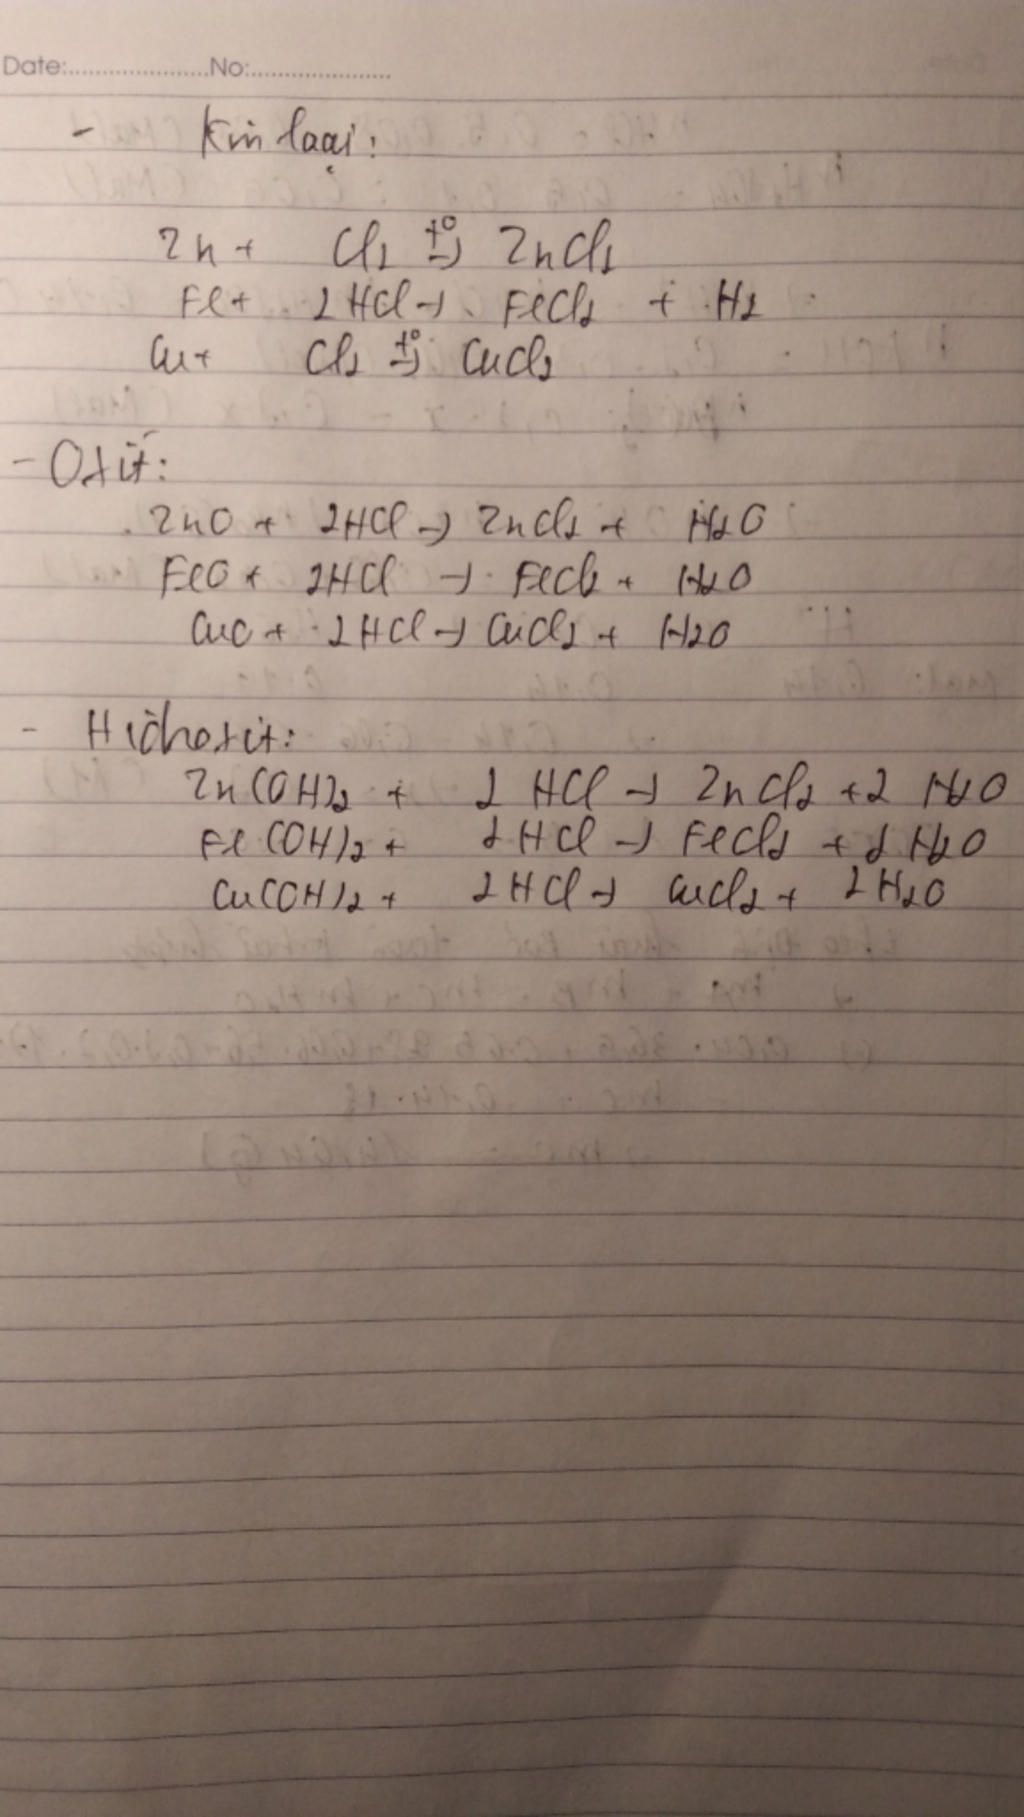 Date:.....................No:.....................
- Kim loại:
Zn + Cl₂ t°→ ZnCl₂
Fe + 2HCl → FeCl₂ + H₂
Cu + Cl₂ t°→ CuCl₂
- Oxit:
ZnO + 2HCl → ZnCl₂ + H₂O
FeO + 2HCl → FeCl₂ + H₂O
CuO + 2HCl → CuCl₂ + H₂O
- Hidroxit:
Zn(OH)₂ + 2HCl → ZnCl₂ + 2H₂O
Fe(OH)₂ + 2HCl → FeCl₂ + 2H₂O
Cu(OH)₂ + 2HCl → CuCl₂ + 2H₂O